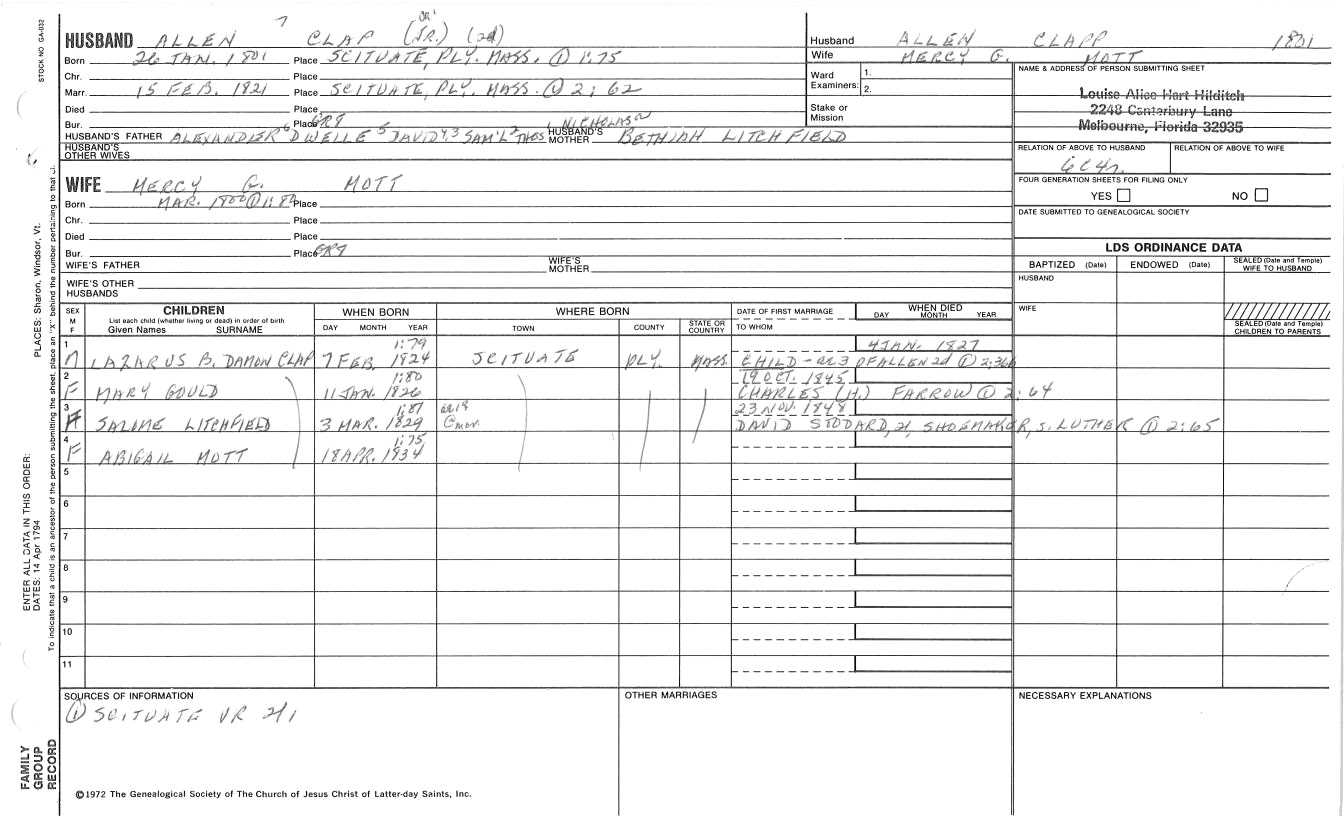 STOCK NO. GA-032
7 OR
HUSBAND ALLEN CLAP (JR.) (2d)
Born 26 JAN. 1801 Place SCITUATE, PLY. MASS. ① 1:75
Chr. Place
Marr. 15 FEB. 1821 Place SCITUATE, PLY. MASS. ① 2:62
Died Place
Bur. Place GRT
HUSBAND'S FATHER ALEXANDER 6 DWELLE 5 DAVID 4,3 SAM'L 2 THOS 1 NICHOLAS HUSBAND'S MOTHER BETHIAH LITCHFIELD
HUSBAND'S OTHER WIVES
WIFE MERCY G. MOTT
Born MAR. 1800 ① 1: Place
Chr. Place
Died Place
Bur. Place GRT
WIFE'S FATHER WIFE'S MOTHER
WIFE'S OTHER HUSBANDS
Husband ALLEN CLAPP 1801
Wife MERCY G. MOTT
Ward Examiners: 1. 2.
Stake or Mission
NAME & ADDRESS OF PERSON SUBMITTING SHEET
Louise Alice Hart Hilditch
2248 Canterbury Lane
Melbourne, Florida 32935
RELATION OF ABOVE TO HUSBAND RELATION OF ABOVE TO WIFE
6C4r.
FOUR GENERATION SHEETS FOR FILING ONLY
YES NO
DATE SUBMITTED TO GENEALOGICAL SOCIETY
LDS ORDINANCE DATA
BAPTIZED (Date) ENDOWED (Date) SEALED (Date and Temple) WIFE TO HUSBAND
HUSBAND
WIFE
SEALED (Date and Temple) CHILDREN TO PARENTS
SEX M F CHILDREN List each child (whether living or dead) in order of birth Given Names SURNAME
WHEN BORN DAY MONTH YEAR
WHERE BORN TOWN COUNTY STATE OR COUNTRY
DATE OF FIRST MARRIAGE TO WHOM
WHEN DIED DAY MONTH YEAR
1 1:79 4 JAN. 1827
M LAZARUS B. DAMON CLAP 7 FEB. 1824 SCITUATE PLY. MASS. CHILD - ae 3 OF ALLEN 2d ① 2:366
2 1:80 19 OCT. 1845
F MARY GOULD 11 JAN. 1826 CHARLES (H.) FARROW ① 2:64
3 1:81 ae 19 23 NOV. 1848
F SALOME LITCHFIELD 3 MAR. 1829 @mar DAVID STODARD, 21, SHOEMAKER, S. LUTHER ① 2:65
4 1:75
F ABIGAIL MOTT 18 APR. 1834
5
6
7
8
9
10
11
SOURCES OF INFORMATION
① SCITUATE VR 2/1
OTHER MARRIAGES
NECESSARY EXPLANATIONS
©1972 The Genealogical Society of The Church of Jesus Christ of Latter-day Saints, Inc.
FAMILY GROUP RECORD
ENTER ALL DATA IN THIS ORDER:
DATES: 14 Apr 1794
PLACES: Sharon, Windsor, Vt.
To indicate that a child is an ancestor of the person submitting the sheet, place an "X" behind the number pertaining to that